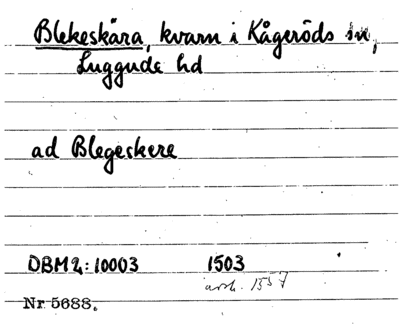 Blekeskära, kvarn i Kågeröds sn,
Luggude hd
ad Blegeskere
DBM 2:10003 1503
avsk. 1557
Nr 5688.